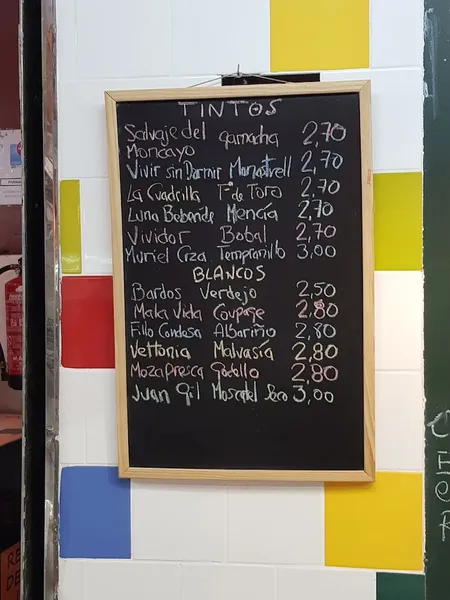 TINTOS
Salvaje del garnacha 2,70
Moncayo
Vivir sin Dormir Monastrell 2,70
La Cuadrilla Tª de Toro 2,70
Luna Beberide Mencía 2,70
Vividor Bobal 2,70
Muriel Crza. Tempranillo 3,00
BLANCOS
Bardos Verdejo 2,50
Mala Vida Coupage 2,80
Fillo Condesa Albariño 2,80
Vettonia Malvasía 2,80
Moza Fresca Godello 2,80
Juan Gil Moscatel Seco 3,00